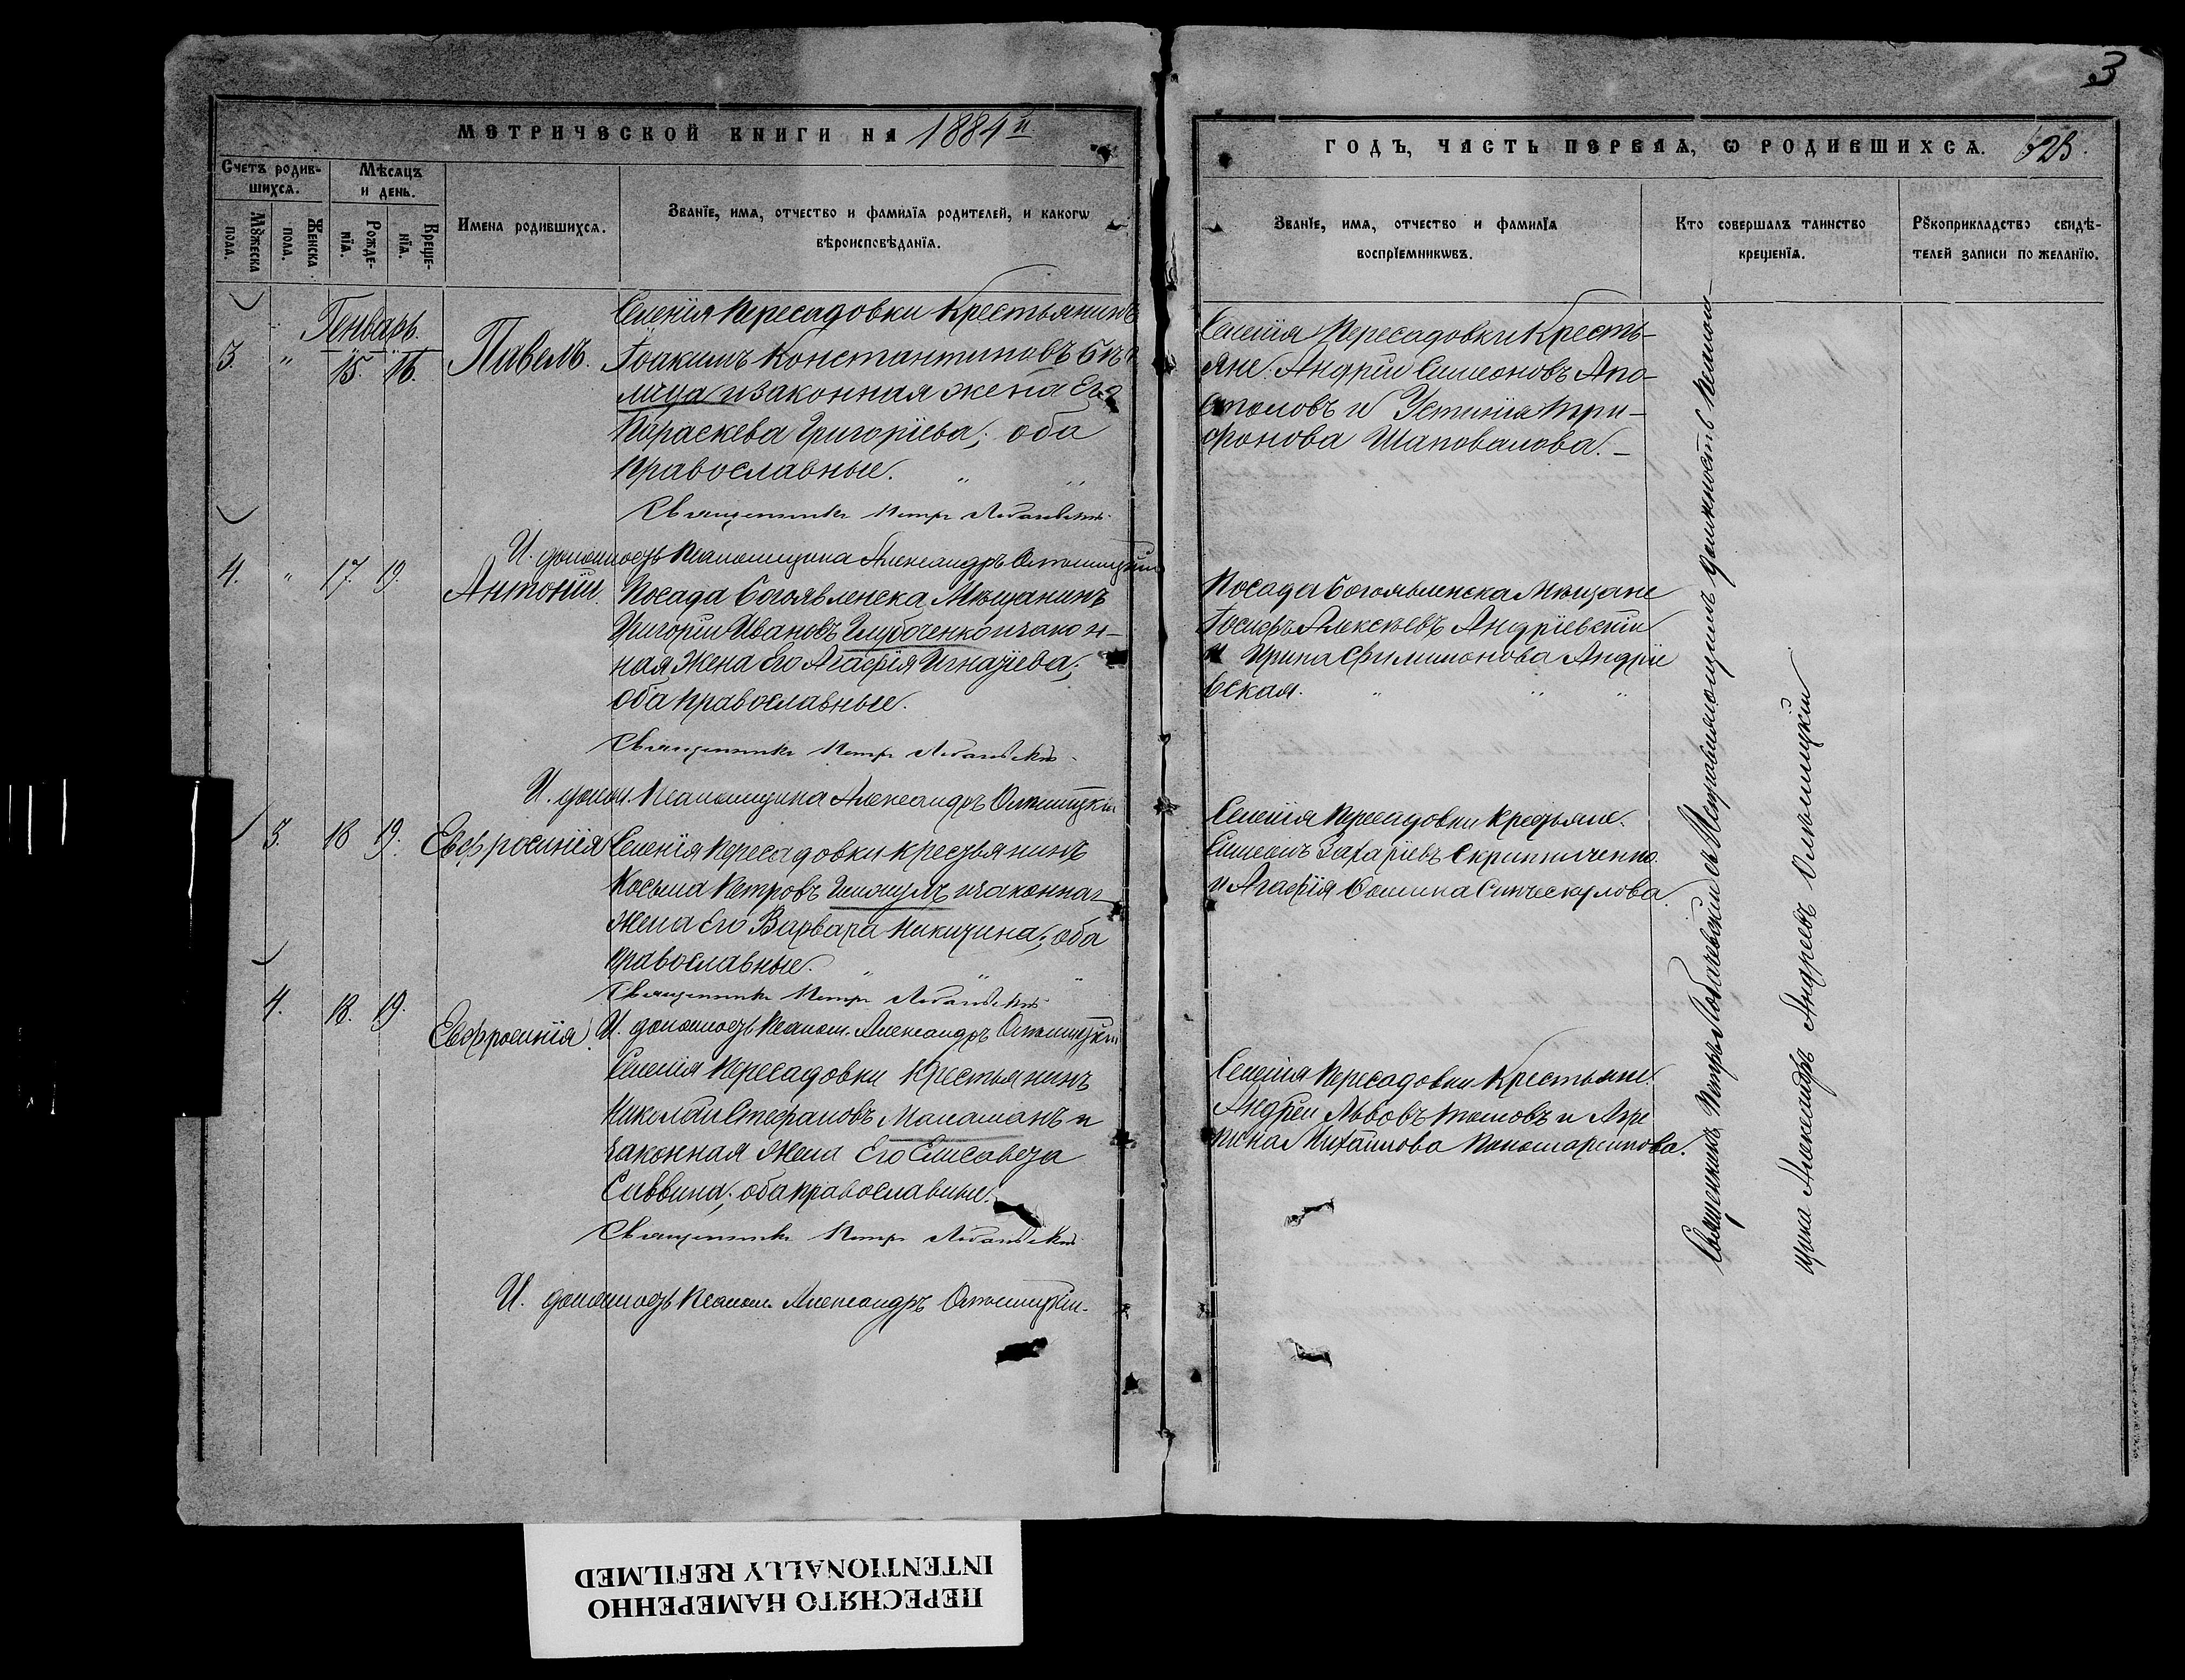 3
МЕТРИЧЕСКОЙ КНИГИ НА 1884й
ГОДЪ, ЧАСТЬ ПЕРВАЯ, Ѡ РОДИВШИХСѦ.
Счетъ родив-
шихсѧ.
Мѣсѧцъ
и день.
Мꙋжеска
пола.
Женска
пола.
Рожде-
нїѧ.
Креще-
нїѧ.
Имена родившихсѧ.
Званїе, имѧ, отчество и фамилїѧ родителей, и какогѡ
вѣроисповѣданїѧ.
Званїе, имѧ, отчество и фамилїѧ
воспрїемникѡвъ.
Кто совершалъ таинство
крещенїѧ.
Рꙋкоприкладство свидѣ-
телей записи по желанїю.
Генварь.
3. " 15. 16. Павелъ.
Селенія Пересадовки Крестьянинъ
Іоакимъ Константиновъ
и законная жена Его
Параскева Григоріева; оба
православные.
Священникъ Петръ
И. должность Псаломщика Александръ
Селенія Пересадовки Кресть-
яне: Андрей Симеоновъ Апо-
столовъ и Устинія Три-
фонова Шаповалова.
4. " 17. 19. Антоній.
Посада Богоявленска Мѣщанинъ
Григорій Ивановъ Глубоченко и закон-
ная Жена Его Агафія Игнатіева;
оба православные.
Священникъ Петръ
И. должн. Псаломщика Александръ
Посада Богоявленска Мѣщане
Іосифъ Алексѣевъ Андріевскій
и Ирина Филимонова Андріе
вская.
3. 18 19. Евфросинія
Селенія Пересадовки крестьянинъ
Косьма Петровъ и законная
Жена Его Варвара Никитина; оба
православные.
Священникъ Петръ
И. должность Псалом. Александръ
Селенія Пересадовки крестьяне.
Симеонъ Захаріевъ
и Агафія Фомина
4. 18. 19. Евфросинія.
Селенія Пересадовки Крестьянинъ
Николай Стефановъ Маламанъ и
законная Жена Его Елисавета
Саввина; оба православные.
Священникъ Петръ
И. должность Псалом. Александръ
Селенія Пересадовки Крестьяне.
Андрей Львовъ Томовъ и Агри
пина Михайлова
Священникъ Петръ Лобачевскій съ Исправляющимъ должность Псалом-
щика Александръ Андреевъ
ПЕРЕСНЯТО НАМЕРЕННО
INTENTIONALLY REFILMED